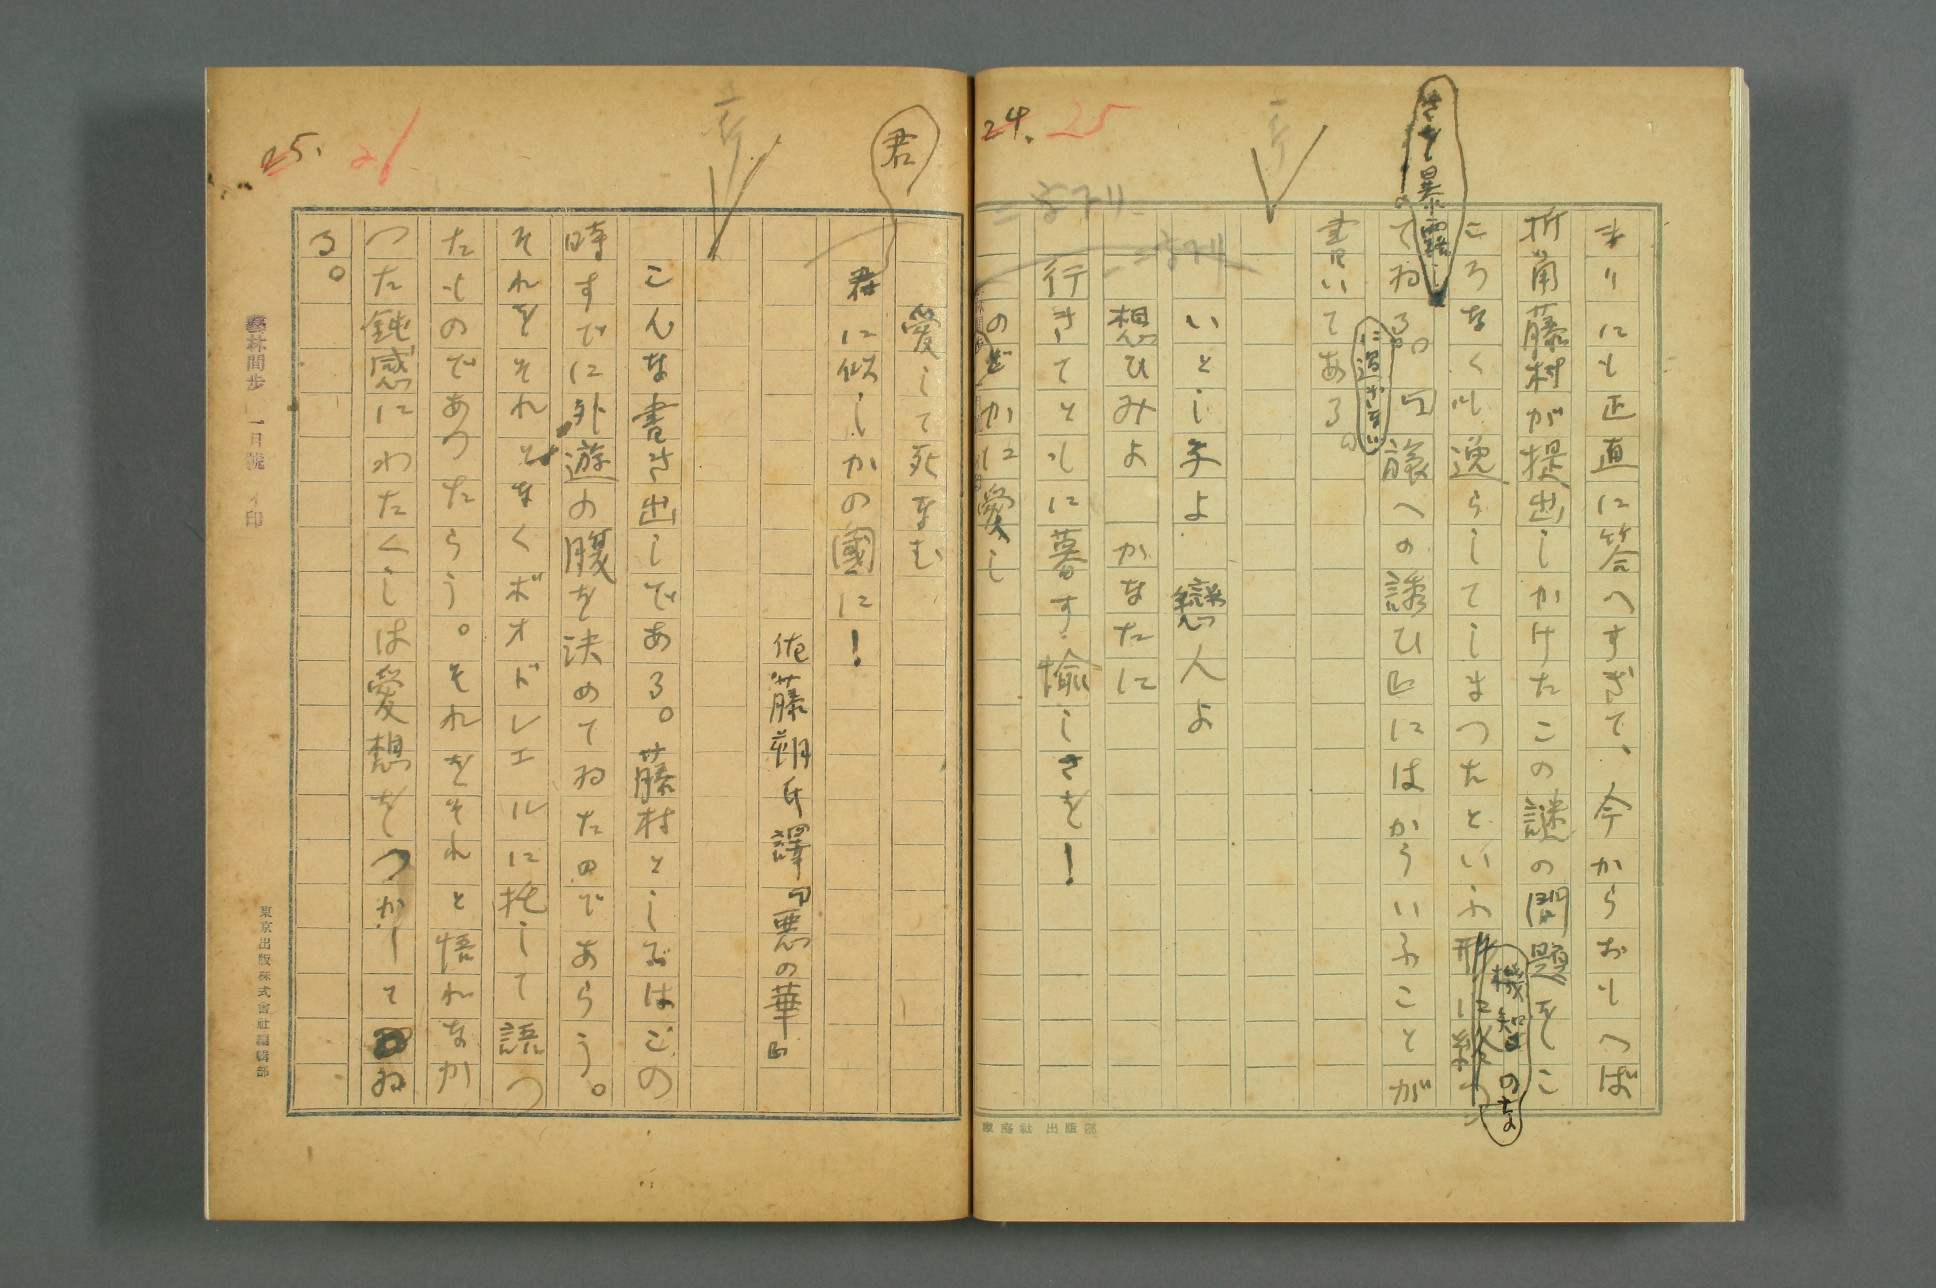 24. 25
まりにも正直に答へすぎて、今からおもへば
折角藤村が提出しかけたこの謎の問題をしこ
ころなくも逸らしてしまつたといふ形に終わ
機知のな
さを暴露し
てゐる。『旅への誘ひ』にはかういふことが
に過ぎない
書いてある。
二字下ゲ
いとし子よ 戀人よ
想ひみよ かなたに
行きてともに暮す愉しさを!
二字下ゲ
のどかに愛し
25. 26
愛して死なむ
君
君に似しかの國に!
佐藤朔氏譯『悪の華』
こんな書き出しである。藤村としてはこの
時すでに外遊の腹を決めてゐたのであらう。
それをそれとなくボオドレエルに托して語つ
たものであつたらう。それをそれと悟れなか
つた鈍感にわたくしは愛想をつかしてゐ
る。
藝林間歩 一月號 イ印
東京出版株式會社編輯部